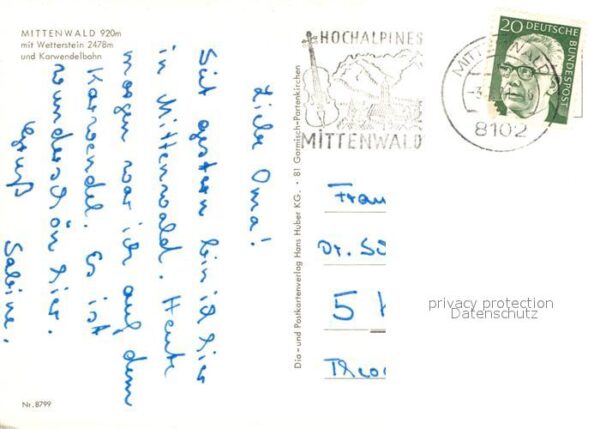 MITTENWALD 920m
mit Wetterstein 2478m
und Karwendelbahn
Liebe Oma!
Seit gestern bin ich hier
in Mittenwald. Heute
morgen war ich auf dem
Karwendel. Es ist
wunderschön hier.
Gruß
Sabine.
Nr. 8799
Dia- und Postkartenverlag Hans Huber KG. • 81 Garmisch-Partenkirchen
HOCHALPINES
MITTENWALD
MITTENWALD
8102
20 DEUTSCHE
BUNDESPOST
Frau
Dr. Sü
5
Theo
privacy protection
Datenschutz